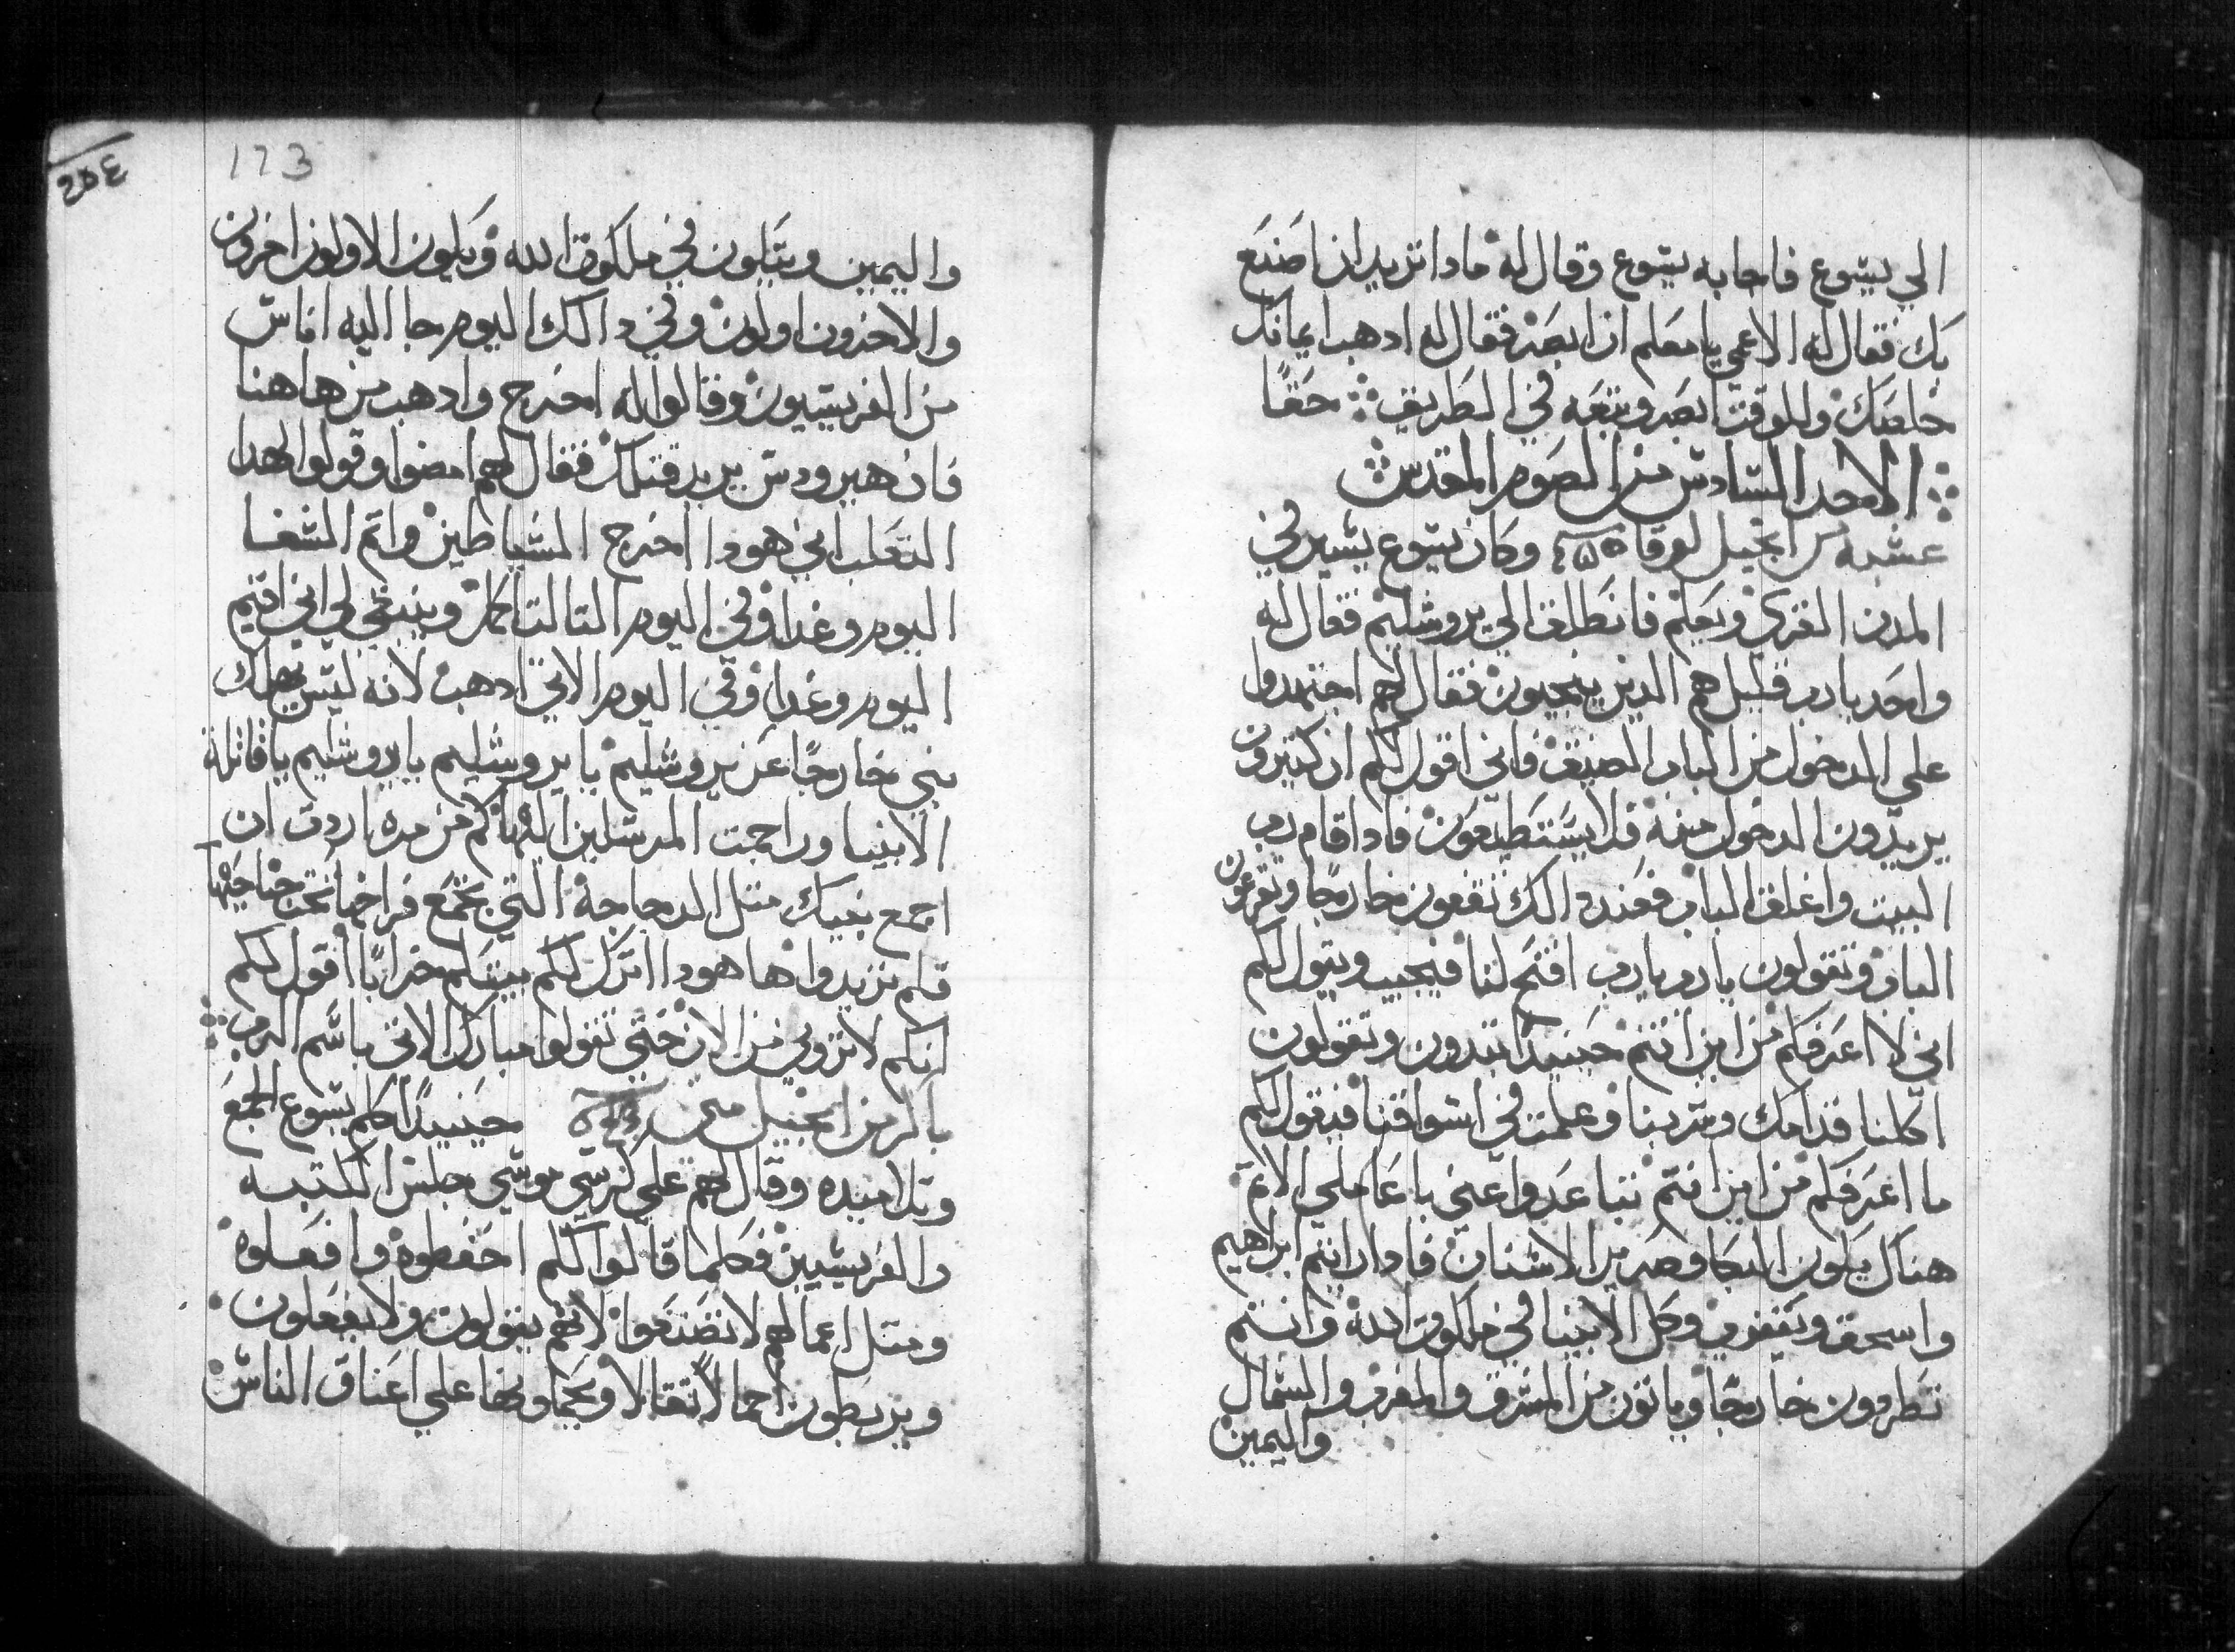 الي يسوع فاجابه يسوع وقال له مادا تريد ان اصنع
بك فقال له الاعمي يا معلم ان ابصر فقال له ادهب ايمانك
خلصك وللوقت ابصر وتبعه في الطريق حقًا
الاحد السادس من الصوم المقدس
عشيه من انجيل لوقا وكان يسوع يسير في
المدن القري ويعلم فانطلق الي يروشليم فقال له
واحد يا رب قليل هم الدين ينجيون فقال لهم اجتهدوا
علي الدخول من الباب الضيق فاني اقول لكم ان كتيرون
يريدون الدخول منه فلا يستطيعون فادا قام رب
البيت واغلق الباب فعند دالك تقفون خارجًا وتقرعون
الباب وتقولون يا رب يا رب افتح لنا فيجيب ويقول لكم
اني لا اعرفكم من اين انتم حينيدًا تبدون وتقولون
اكلنا قدامك وشربنا وعلمت في اسواقنا فيقول لكم
ما اعرفكم من اين انتم تباعدوا عني يا عاملي الاتم
هناك يكون البكا وصرير الاسنان فادا رايتم ابراهيم
واسحق ويعقوب وكل الانبيا في ملكوت الله وانتم
تطردون خارجًا وياتون من المشرق والمغرب والشمال
واليمين
٢٥٤
173
واليمين ويتكون في ملكوت الله ويكون الاولون اخرون
والاخرون اولون وفي دالك اليوم جا اليه اناس
من الفريسيون وقالوا له اخرج وادهب من هاهنا
فان هيرودس يريد قتلك فقال لهم امضوا وقولوا لهدا
التعلب اني هودا اخرج الشياطين واتم الشفا
اليوم وغدا وفي اليوم التالت اكمل وينبغي لي اني اقيم
اليوم وغدا وفي اليوم الاتي ادهب لانه ليس يهلك
نبي خارجًا عن يروشليم يا يروشليم يا يروشليم يا قاتلة
الانبيا وراجمت المرسلين اليها كم من مره اردت ان
اجمع بنيك متل الدجاجة التي تجمع فراخها تحت جناحيها
فلم تريدوا ها هودا اترك لكم بيتكم خرابًا اقول لكم
انكم لا تروني من الان حتي تقولوا مبارك الاتي باسم الرب
باكر من انجيل متي حينيدًا كلم يسوع الجمع
وتلاميده وقال لهم علي كرسي موسي جلس الكتبه
والفريسيين فكلما قالوا لكم احفظوه وافعلوه
ومتل اعمالهم لا تصنعوا لانهم يقولون ولا يفعلون
ويربطون احمالًا تقالا ويحملونها علي اعناق الناس